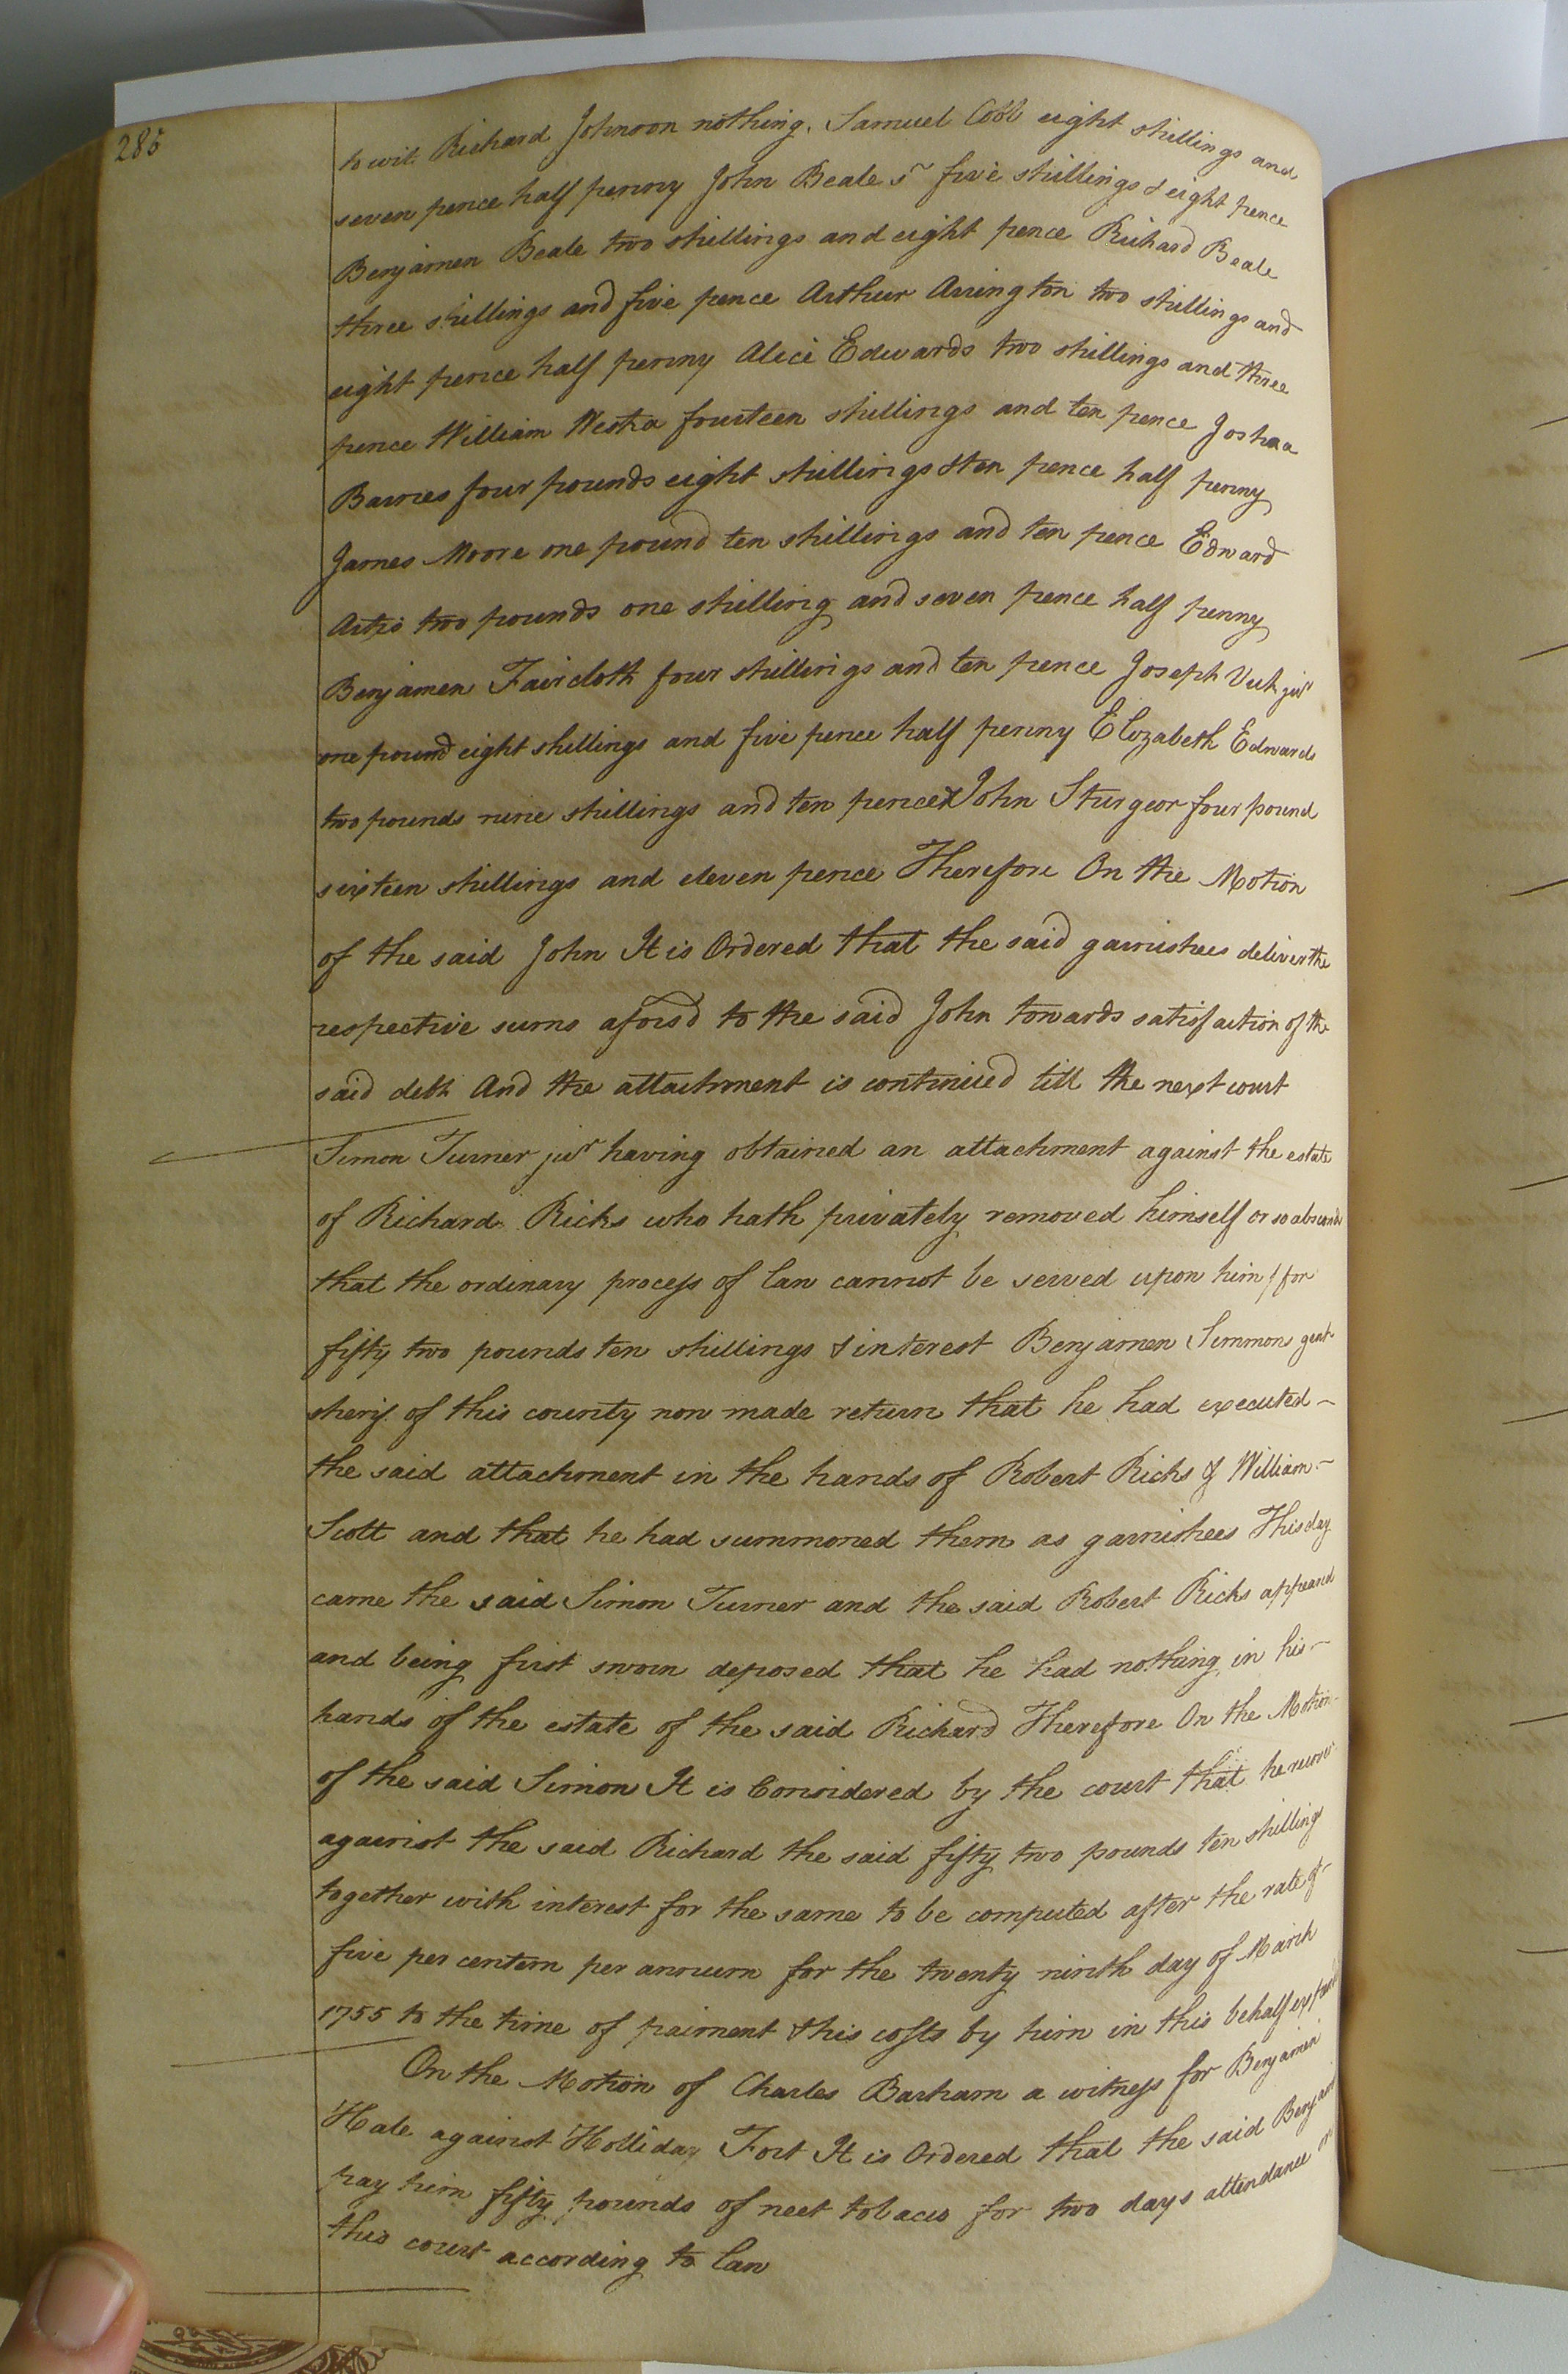 285
to wit Richard Johnson nothing. Samuel Cobb eight shillings and
seven pence half penny John Beale sr five shillings & eight pence
Benjamen Beale two shillings and eight pence Richard Beale
three shillings and five pence Arthur Arrington two shillings and
eight pence half penny Alice Edwards two shillings and three
pence William Westra fourteen shillings and ten pence Joshua
Barnes four pounds eight shillings & ten pence half penny
James Moore one pound ten shillings and ten pence Edward
two pounds one shilling and seven pence half penny
Benjamen Faircloth four shillings and ten pence Joseph junr
one pound eight shillings and five pence half penny Elizabeth Edwards
two pounds nine shillings and ten pence & John Sturgeor four pound
sixteen shillings and eleven pence Therefore On the Motion
of the said John It is Ordered that the said garnishees deliver the
respective sums aforsd to the said John towards satisfaction of the
said debt And the attachment is continued till the next court
Simon Turner junr having obtained an attachment against the estate
of Richard Ricks who hath privately removed himself or so absconds
that the ordinary process of law cannot be served upon him for
fifty two pounds ten shillings & interest Benjamen Simmons gent
sherif of this county now made return that he had executed -
the said attachment in the hands of Robert Ricks & William -
Scott and that he had summoned them as garnishees This day
came the said Simon Turner and the said Robert Ricks appeared
and being first sworn deposed that he had nothing in his -
hands of the estate of the said Richard Therefore On the Motion -
of the said Simon It is Considered by the court that he recover
against the said Richard the said fifty two pounds ten shillings
together with interest for the same to be computed after the rate of -
five per centem per annum for the twenty ninth day of March
1755 to the time of paiment & his costs by him in this behalf expended
On the Motion of Charles Barham a witness for Benjamin
Hale against Holliday Fort It is Ordered that the said Benjamin
pay him fifty pounds of neet tobacco for two days attendance on
this court according to law